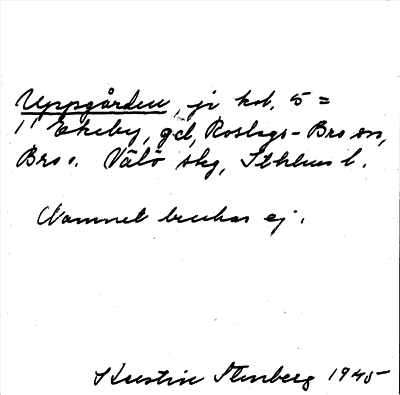 Uppgården, ji kol. 5 =
1 Ekeby, gd, Roslags-Bro sn,
Bro o. Vätö skg, Sthlms l.
Namnet brukas ej.
Kerstin Stenberg 1945